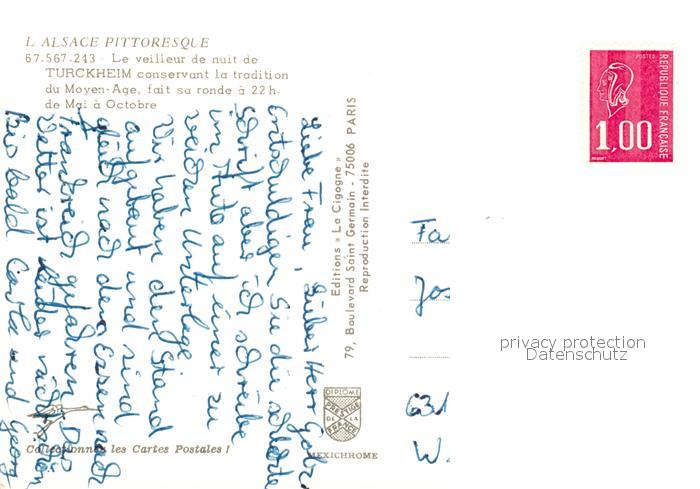 L ALSACE PITTORESQUE
67.567.243 - Le veilleur de nuit de
TURCKHEIM conservant la tradition
du Moyen-Age, fait sa ronde à 22 h.
de Mai à Octobre
Liebe Frau, lieber Herr
entschuldigen Sie die schlechte
Schrift aber ich schreibe
im Auto auf einer zu
weichen Unterlage
Wir haben den Stand
aufgebaut und sind
gleich nach dem Essen nach
Frankreich gefahren. Das
Wetter ist leider nicht schön
Bis bald Carla und Georg
Editions « La Cigogne »
79, Boulevard Saint Germain - 75006 PARIS
Reproduction Interdite
POSTES
REPUBLIQUE FRANÇAISE
1,00
Fa
Jos
631
W.
privacy protection
Datenschutz
DIPLOME
PRESTIGE
DE LA
FRANCE
MEXICHROME
Collectionnez les Cartes Postales !